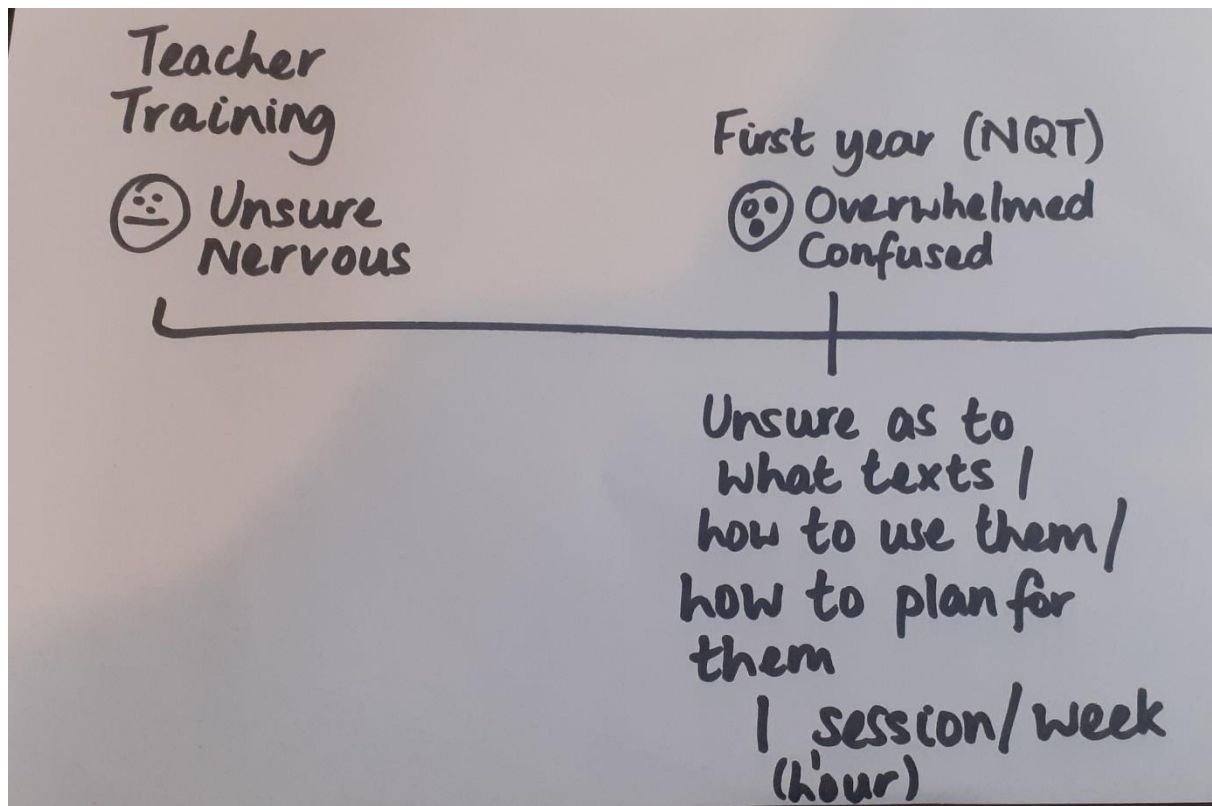 Teacher
Training
Unsure
Nervous
First year (NQT)
Overwhelmed
Confused
Unsure as to
what texts /
how to use them /
how to plan for
them
1 session/week
(hour)